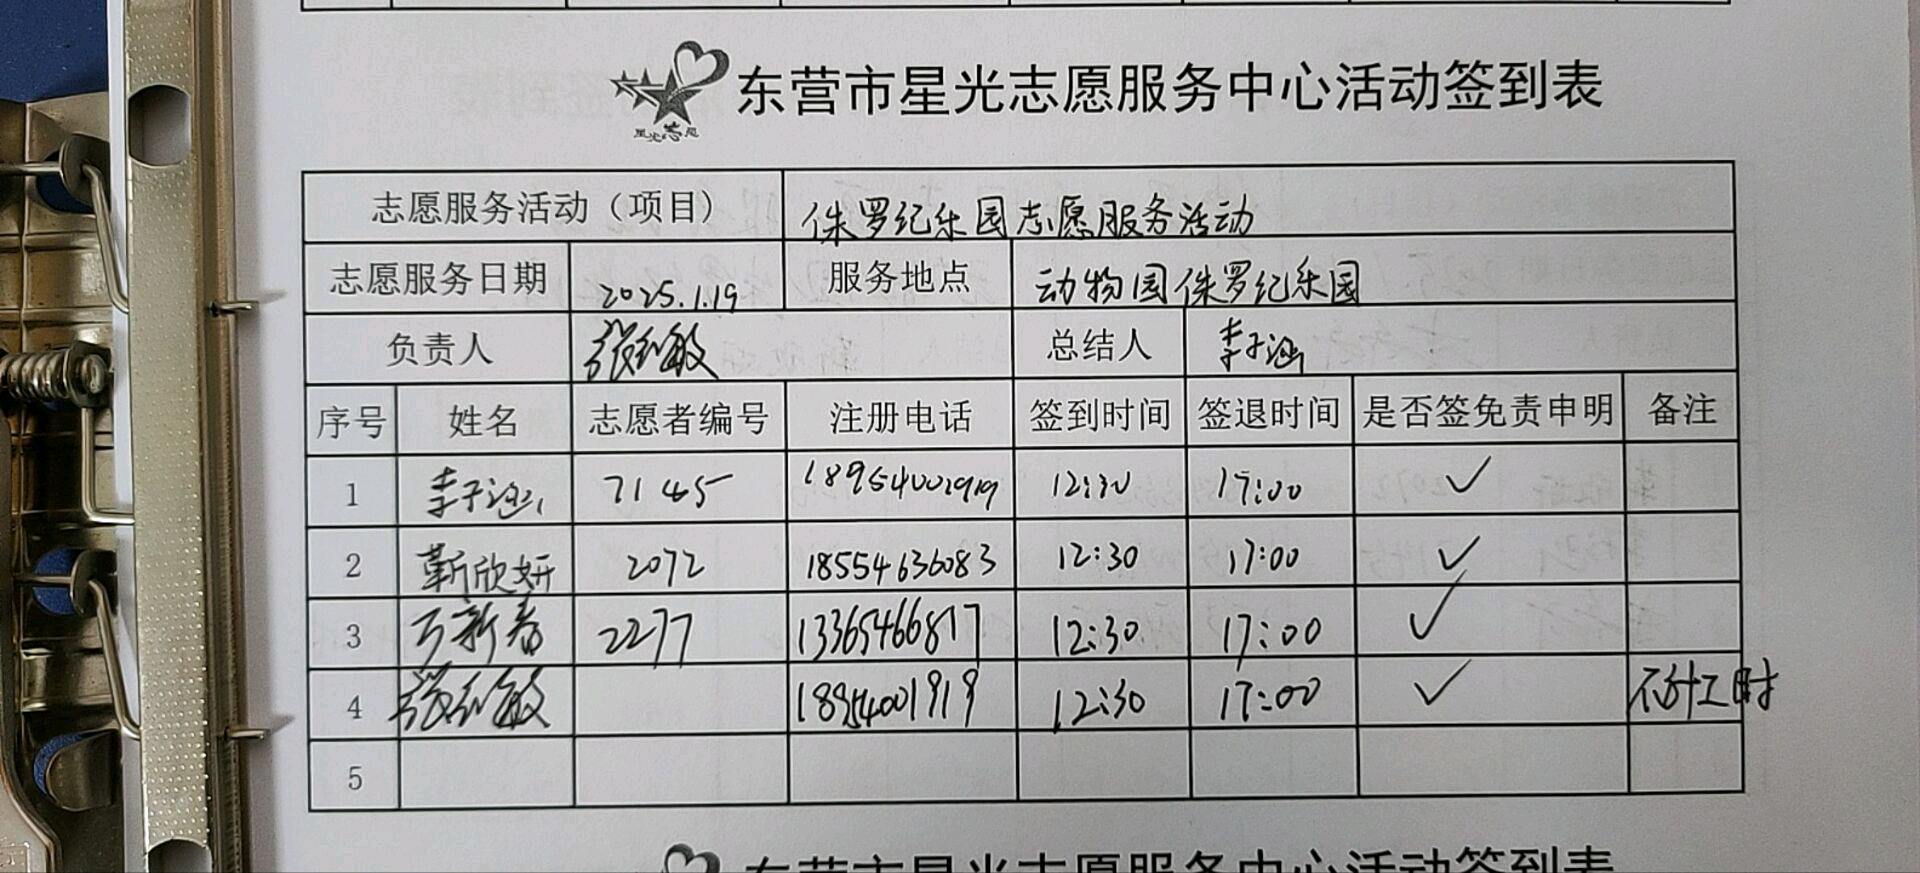 东营市星光志愿服务中心活动签到表
星光志愿
志愿服务活动（项目） 侏罗纪乐园志愿服务活动
志愿服务日期 2025.1.19 服务地点 动物园侏罗纪乐园
负责人 总结人 李子涵
序号 姓名 志愿者编号 注册电话 签到时间 签退时间 是否签免责申明 备注
1 李子涵 7145 12:30 17:00 ✓
2 靳欣妍 2072 18554636083 12:30 17:00 ✓
3 万新春 2277 13365466817 12:30 17:00 ✓
4 18954001919 12:30 17:00 ✓ 不计工时
5
东营市星光志愿服务中心活动签到表